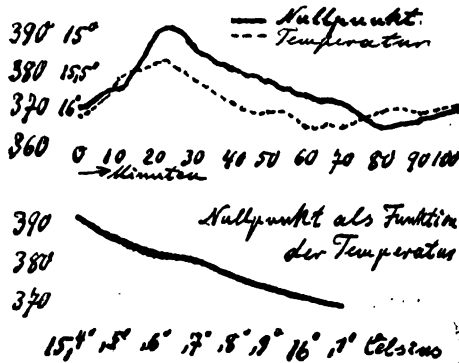 Nullpunkt.
Temperatur
390 15°
380 15,5°
370 16°
360
0 10 20 30 40 50 60 70 80 90 100
Minuten
Nullpunkt als Funktion
der Temperatur
390
380
370
15,4° ,5° ,6° ,7° ,8° ,9° 16° ,1° Celsius